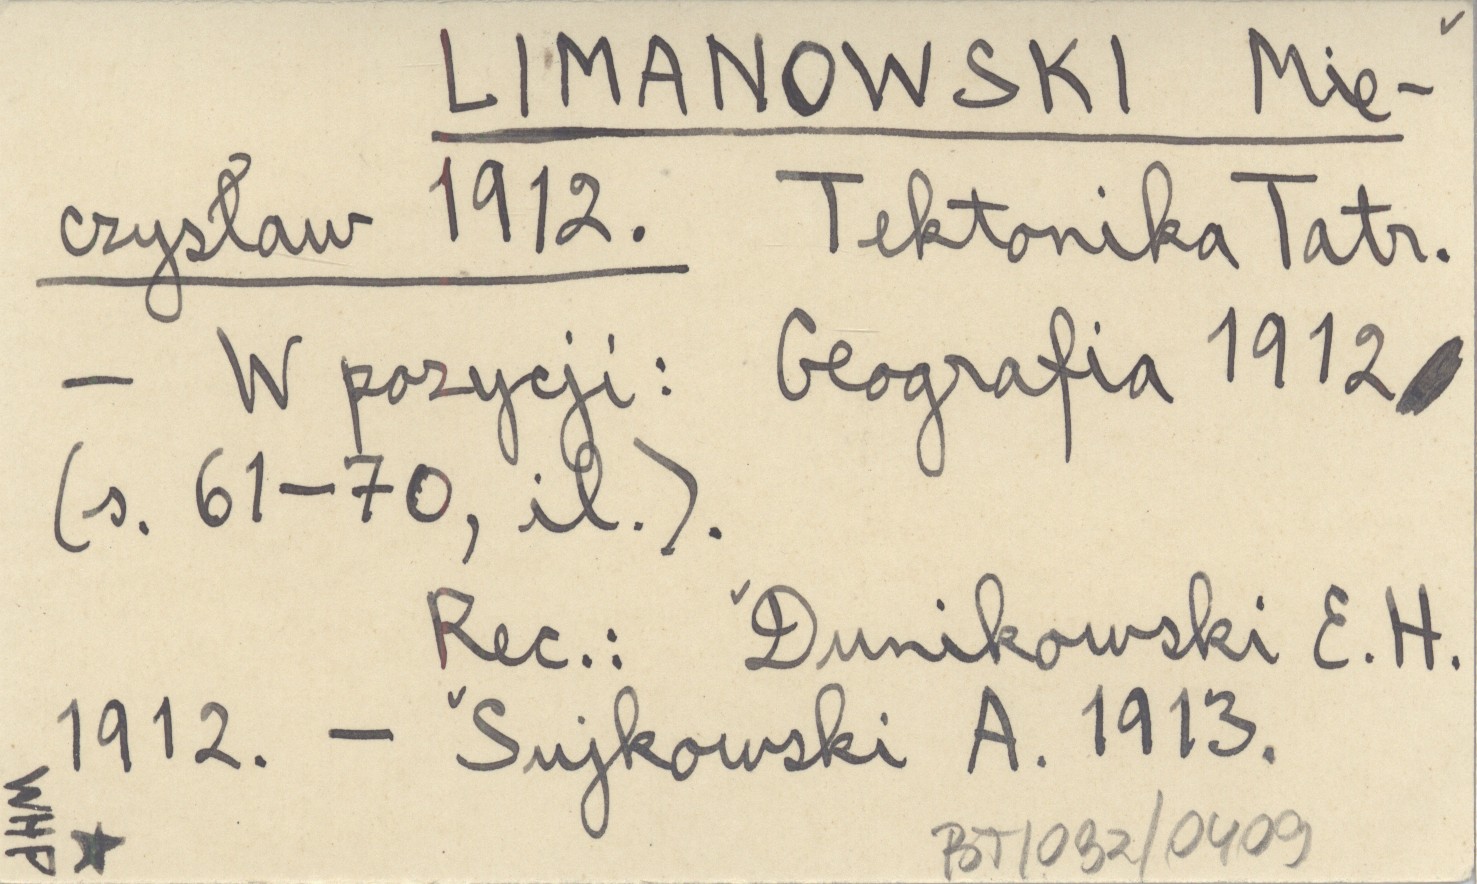 LIMANOWSKI Mie-
czysław 1912. Tektonika Tatr.
— W pozycji: Geografia 1912
(s. 61—70, il.).
Rec.: Dunikowski E.H.
1912. — Sujkowski A. 1913.
WHP
BT/092/0409